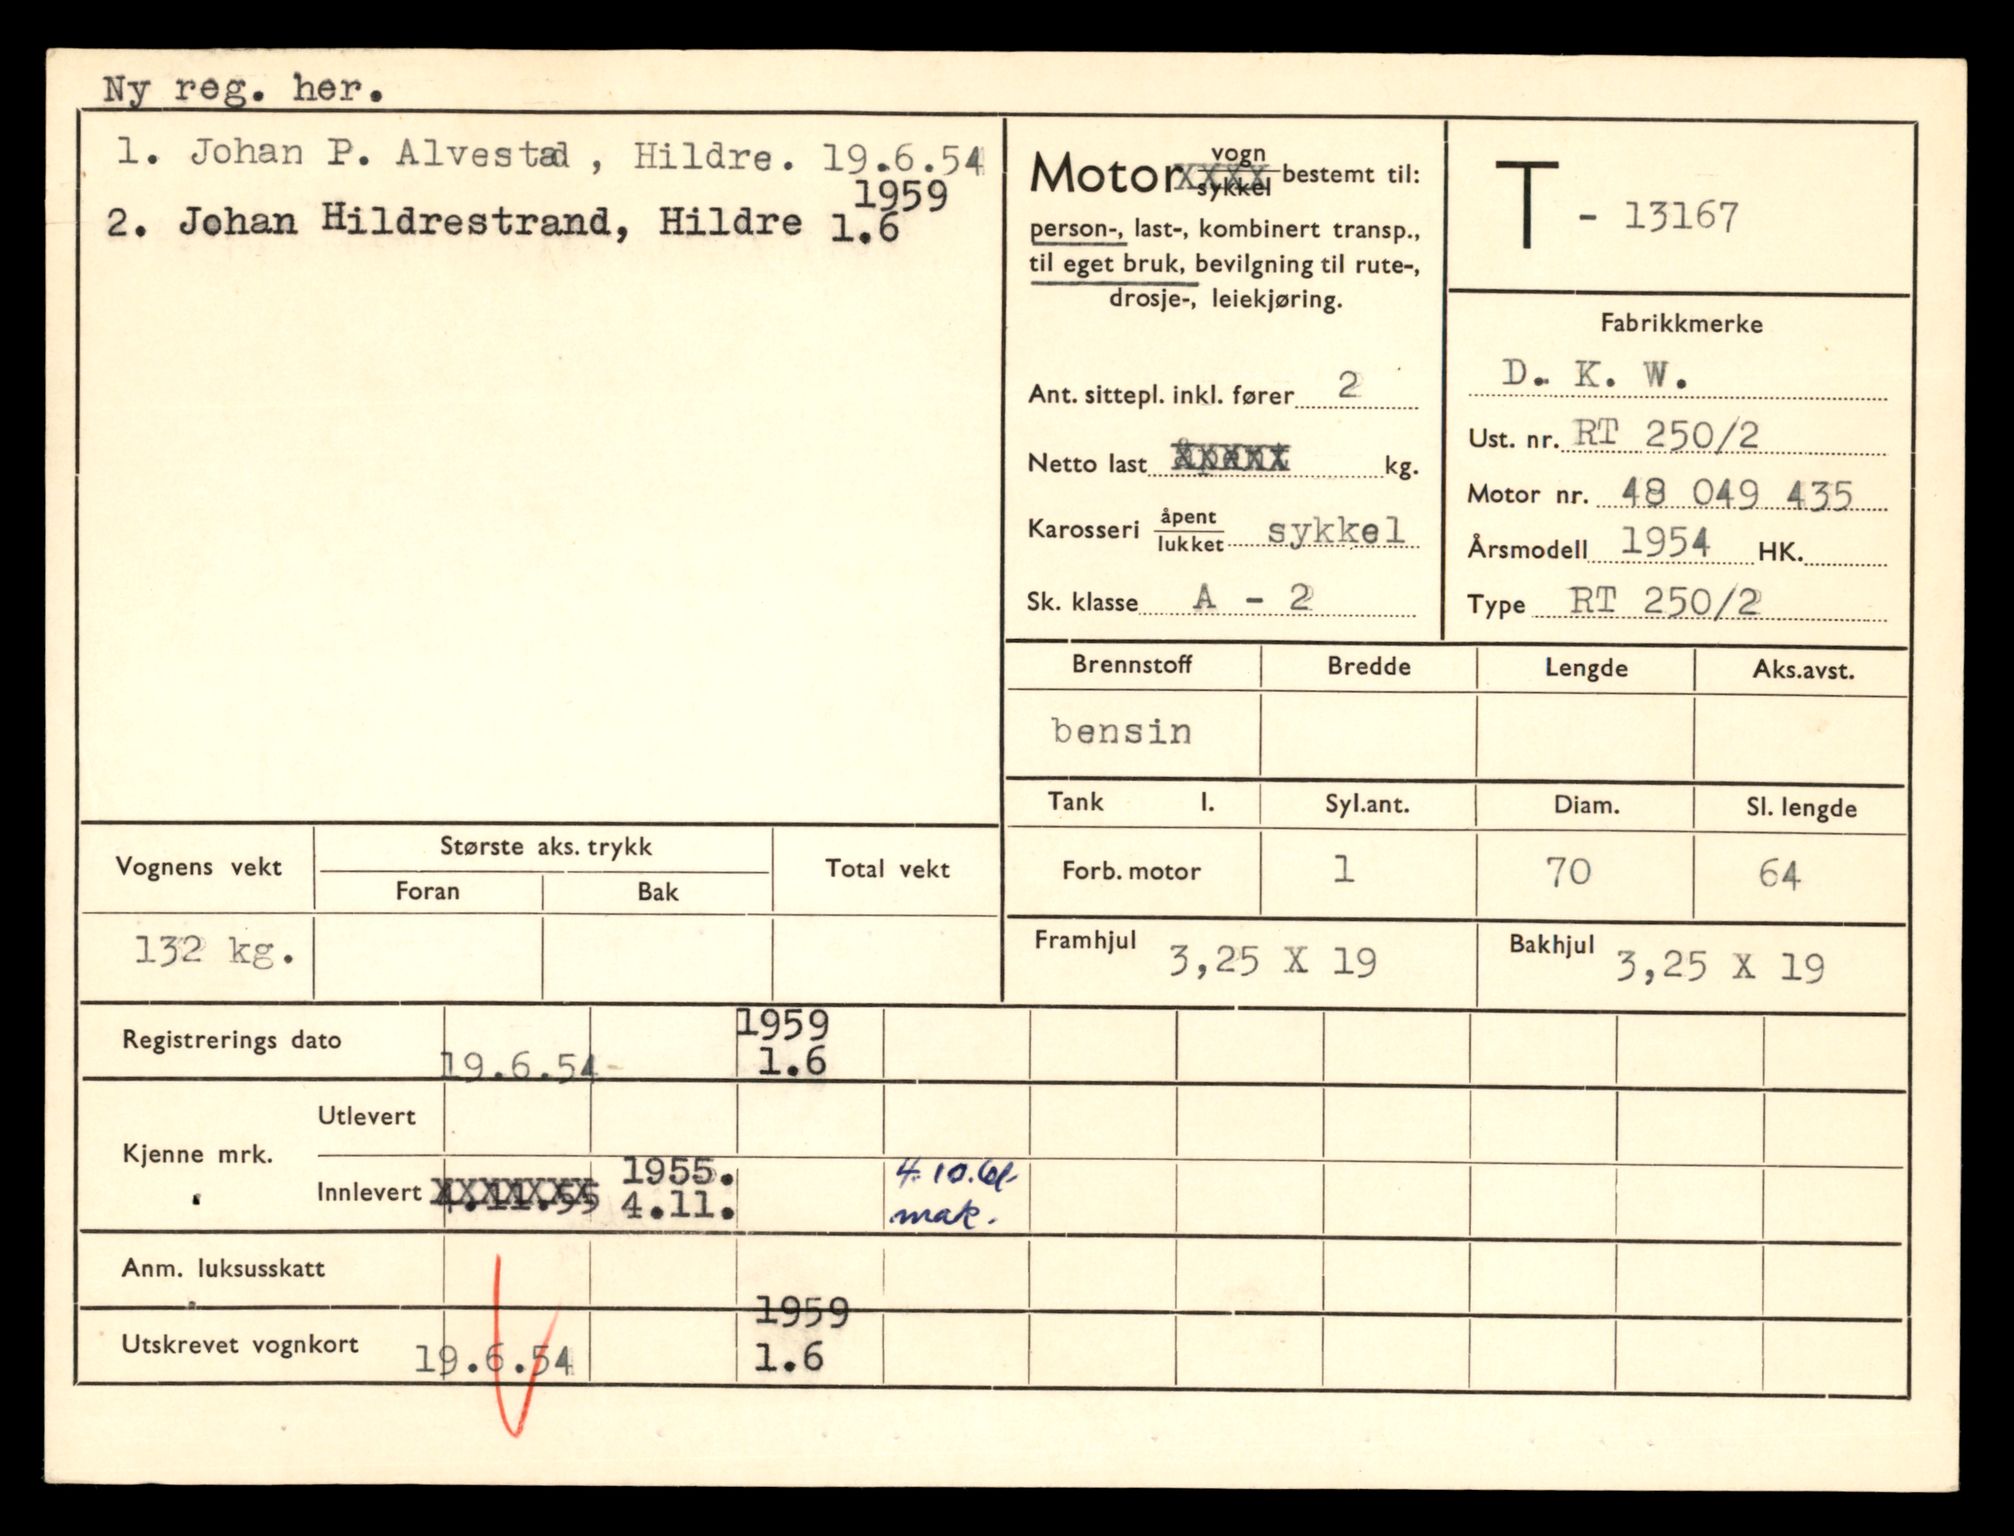 Ny reg. her.
1. Johan P. Alvestad, Hildre. 19.6.54
1959
2. Johan Hildrestrand, Hildre 1.6
Motor vogn sykkel bestemt til:
person-, last-, kombinert transp.,
til eget bruk, bevilgning til rute-,
drosje-, leiekjøring.
Ant. sittepl. inkl. fører 2
Netto last kg.
Karosseri åpent lukket sykkel
Sk. klasse A - 2
T - 13167
Fabrikkmerke
D. K. W.
Ust. nr. RT 250/2
Motor nr. 48 049 435
Årsmodell 1954 HK.
Type RT 250/2
Brennstoff Bredde Lengde Aks.avst.
bensin
Tank l. Syl.ant. Diam. Sl. lengde
Forb. motor 1 70 64
Framhjul 3,25 X 19 Bakhjul 3,25 X 19
Vognens vekt Største aks. trykk Total vekt
Foran Bak
132 kg.
Registrerings dato 19.6.54 1959 1.6
Kjenne mrk.
Utlevert
Innlevert 4.11.55 1955. 4.11. 4.10.61 mak.
Anm. luksusskatt
Utskrevet vognkort 19.6.54 1959 1.6